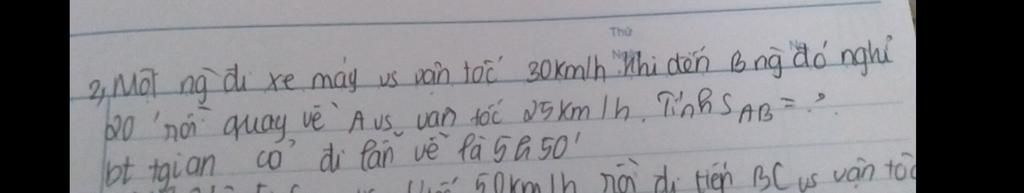 Thứ
2, Một ng` đi xe máy vs vận tốc 30km/h. Khi đến B ng` đó nghỉ
20' rồi quay về A vs vận tốc 25km/h. Tính S AB = ?
bt tgian cả đi lẫn về là 5h50'
50km/h rồi đi tiếp BC vs vận tốc